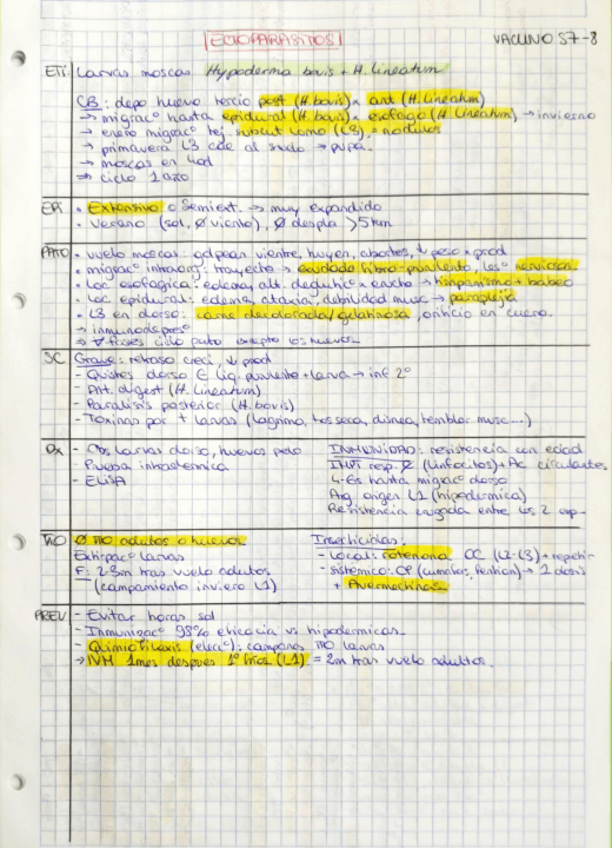 ECTOPARASITOS
VACUNO S7-8
ETI. Larvas moscas Hypoderma bovis + H. lineatum
CB: depo huevo tercio post (H. bovis) x ant (H. lineatum)
→ migrac° hasta epidural (H. bovis) x esofago (H. lineatum) → invierno
→ enero migrac° tej. subcut lomo (L3) = nodulos
→ primavera L3 cae al suelo → pupa.
→ moscas en 40d
⇒ ciclo 1 año
EPI • Extensivo o Semiext. → muy expandido
• Verano (sol, Ø viento), Ø despla >5km
PATO • vuelo moscas: golpean vientre, huyen, abortos, ↓ peso x prod
• migrac° intraorg: trayecto → exudado fibro-purulento, les° nerviosas.
• Loc esofagica: edema, alt. degluc° x eructo → timpanismo + babeo
• Loc epidural: edema, ataxia, debilidad musc → paraplejia
• L3 en dorso: carne decolorada/gelatinosa, orificio en cuero.
→ inmunodepres°
⇒ ∀ fases ciclo pato excepto los huevos
SC Grave: retraso creci, ↓ prod
- Quistes dorso € liq. purulento + larva → inf 2°
- Alt. digest (H. lineatum)
- Paralisis posterior (H. bovis)
- Toxinas por + larvas (lagrimo, tos seca, disnea, temblor musc...)
Dx - Obs larvas dorso, huevos pelo
- Prueba intradermica
- ELISA
INMUNIDAD: resistencia con edad
INMT resp. Ø (linfocitos) + Ac circulantes
4-6s hasta migrac° dorso
Ag origen L1 (hipodermica)
Resistencia cruzada entre las 2 esp.
TTO Ø TTO adultos o huevos
Extirpac° larvas
F: 2-3m tras vuelo adultos
(campamiento inviero L1)
Insecticidas:
- Local: rotenona OC (L2-L3) + repetir
- sistemico: OP (cumafos, fenthion) → 1 dosis
+ Avermectinas
PREV - Evitar horas sol
- Inmunizac° 98% eficacia vs hipodermicas.
- Quimiofilaxis (elecc°): campañas TTO larvas
→ IVM 1mes despues 1° frios (L1) = 2m tras vuelo adultos.